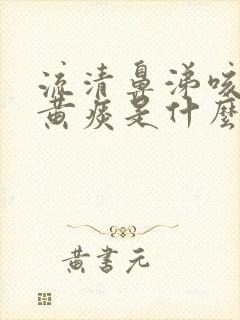 流清鼻涕咳
黄痰是什麼
黄書元